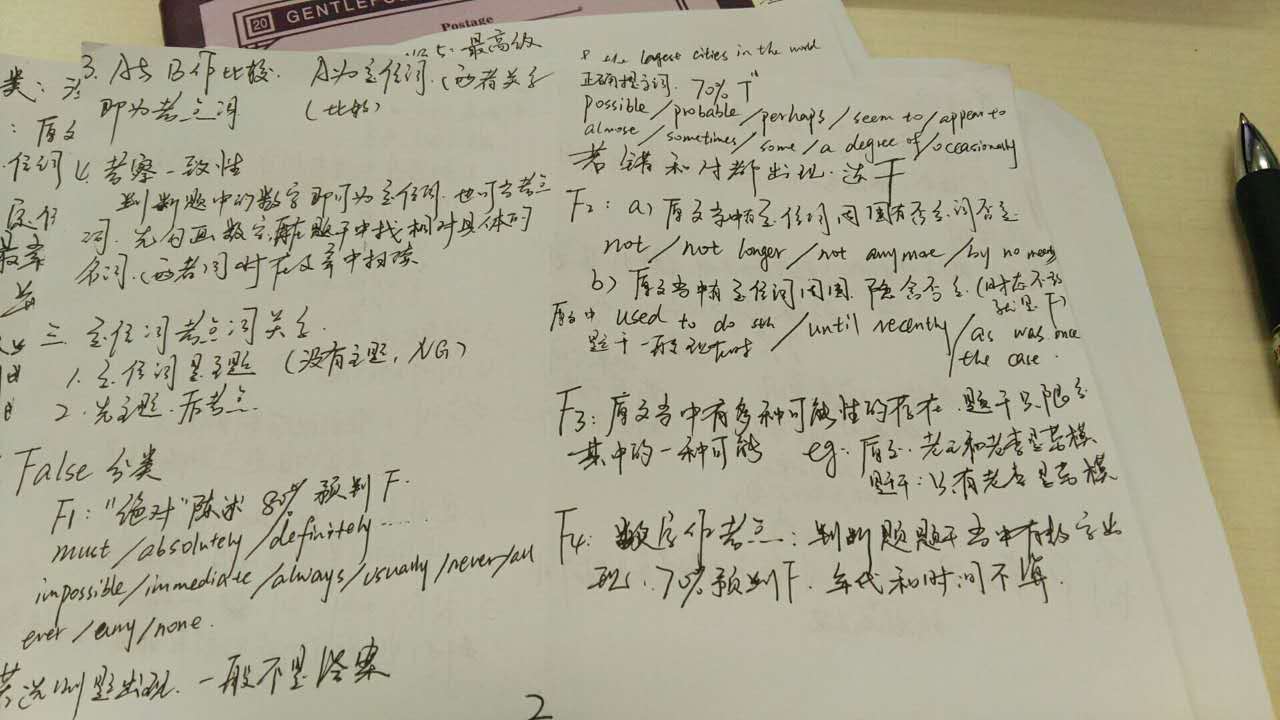 20 GENTLEFO
Postage
类：
3. A与B作比较. A为定位词.(两者关系
即为考点词 (比较)
原文
住词
4. 考察一致性
判断题中的数字即可为定位词. 也可为考点
词. 先勾画数字,再在题干中找相对具体的
名词.(两者)同时在文章中扫读
定位
三. 定位词考点词关系.
1. 定位词是主题 (没有主题, NG)
2. 先主题.后考点.
False 分类
F1: "绝对"陈述 80% 预判F.
must/absolutely/definitely……
impossible/immediate/always/usually/never/all
ever/any/none.
若选择题出现. 一般不是答案
5. 最高级
the largest cities in the world
正确提示词. 70% T
possible/probable/perhaps/seem to/appear to
almose/sometimes/some/a degree of/occasionally
若错和对都出现. 选干
F2: a) 原文当中有定位词周围有否定词否定
not/not longer/not anymoe/by no means
b) 原文当中有定位词周围. 隐含否定.(时态不对
就是F)
原文中 used to do sth/until recently/as was once
题干一般现在时
the case.
F3: 原文当中有多种可能性的存在. 题干只限定
其中的一种可能 eg: 原文: 老王和老李是劳模
题干: 只有老李是劳模
F4: 数字作考点: 判断题题干当中有数字出
现. 70% 预判F. 年代和时间不算.
2